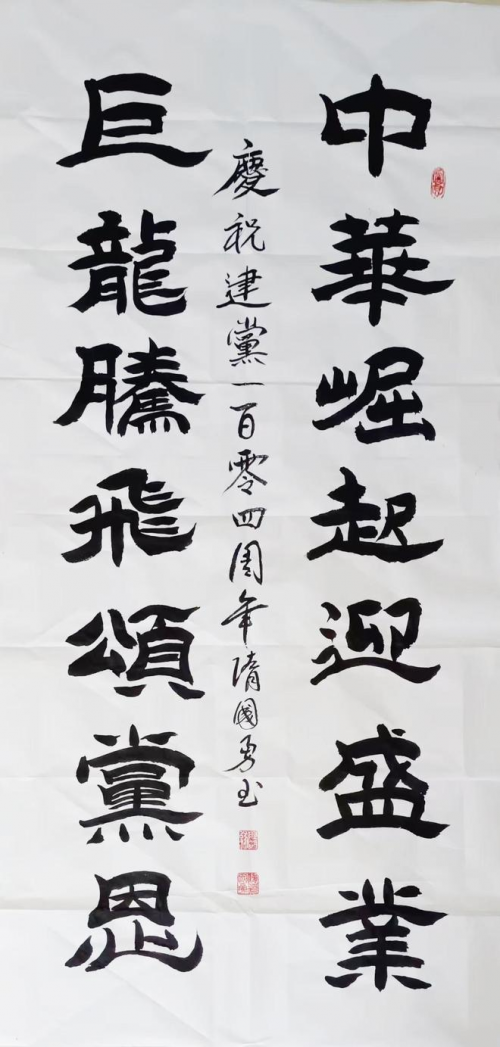 中華崛起迎盛業
巨龍騰飛頌黨恩
慶祝建黨一百零四周年隋國勇书